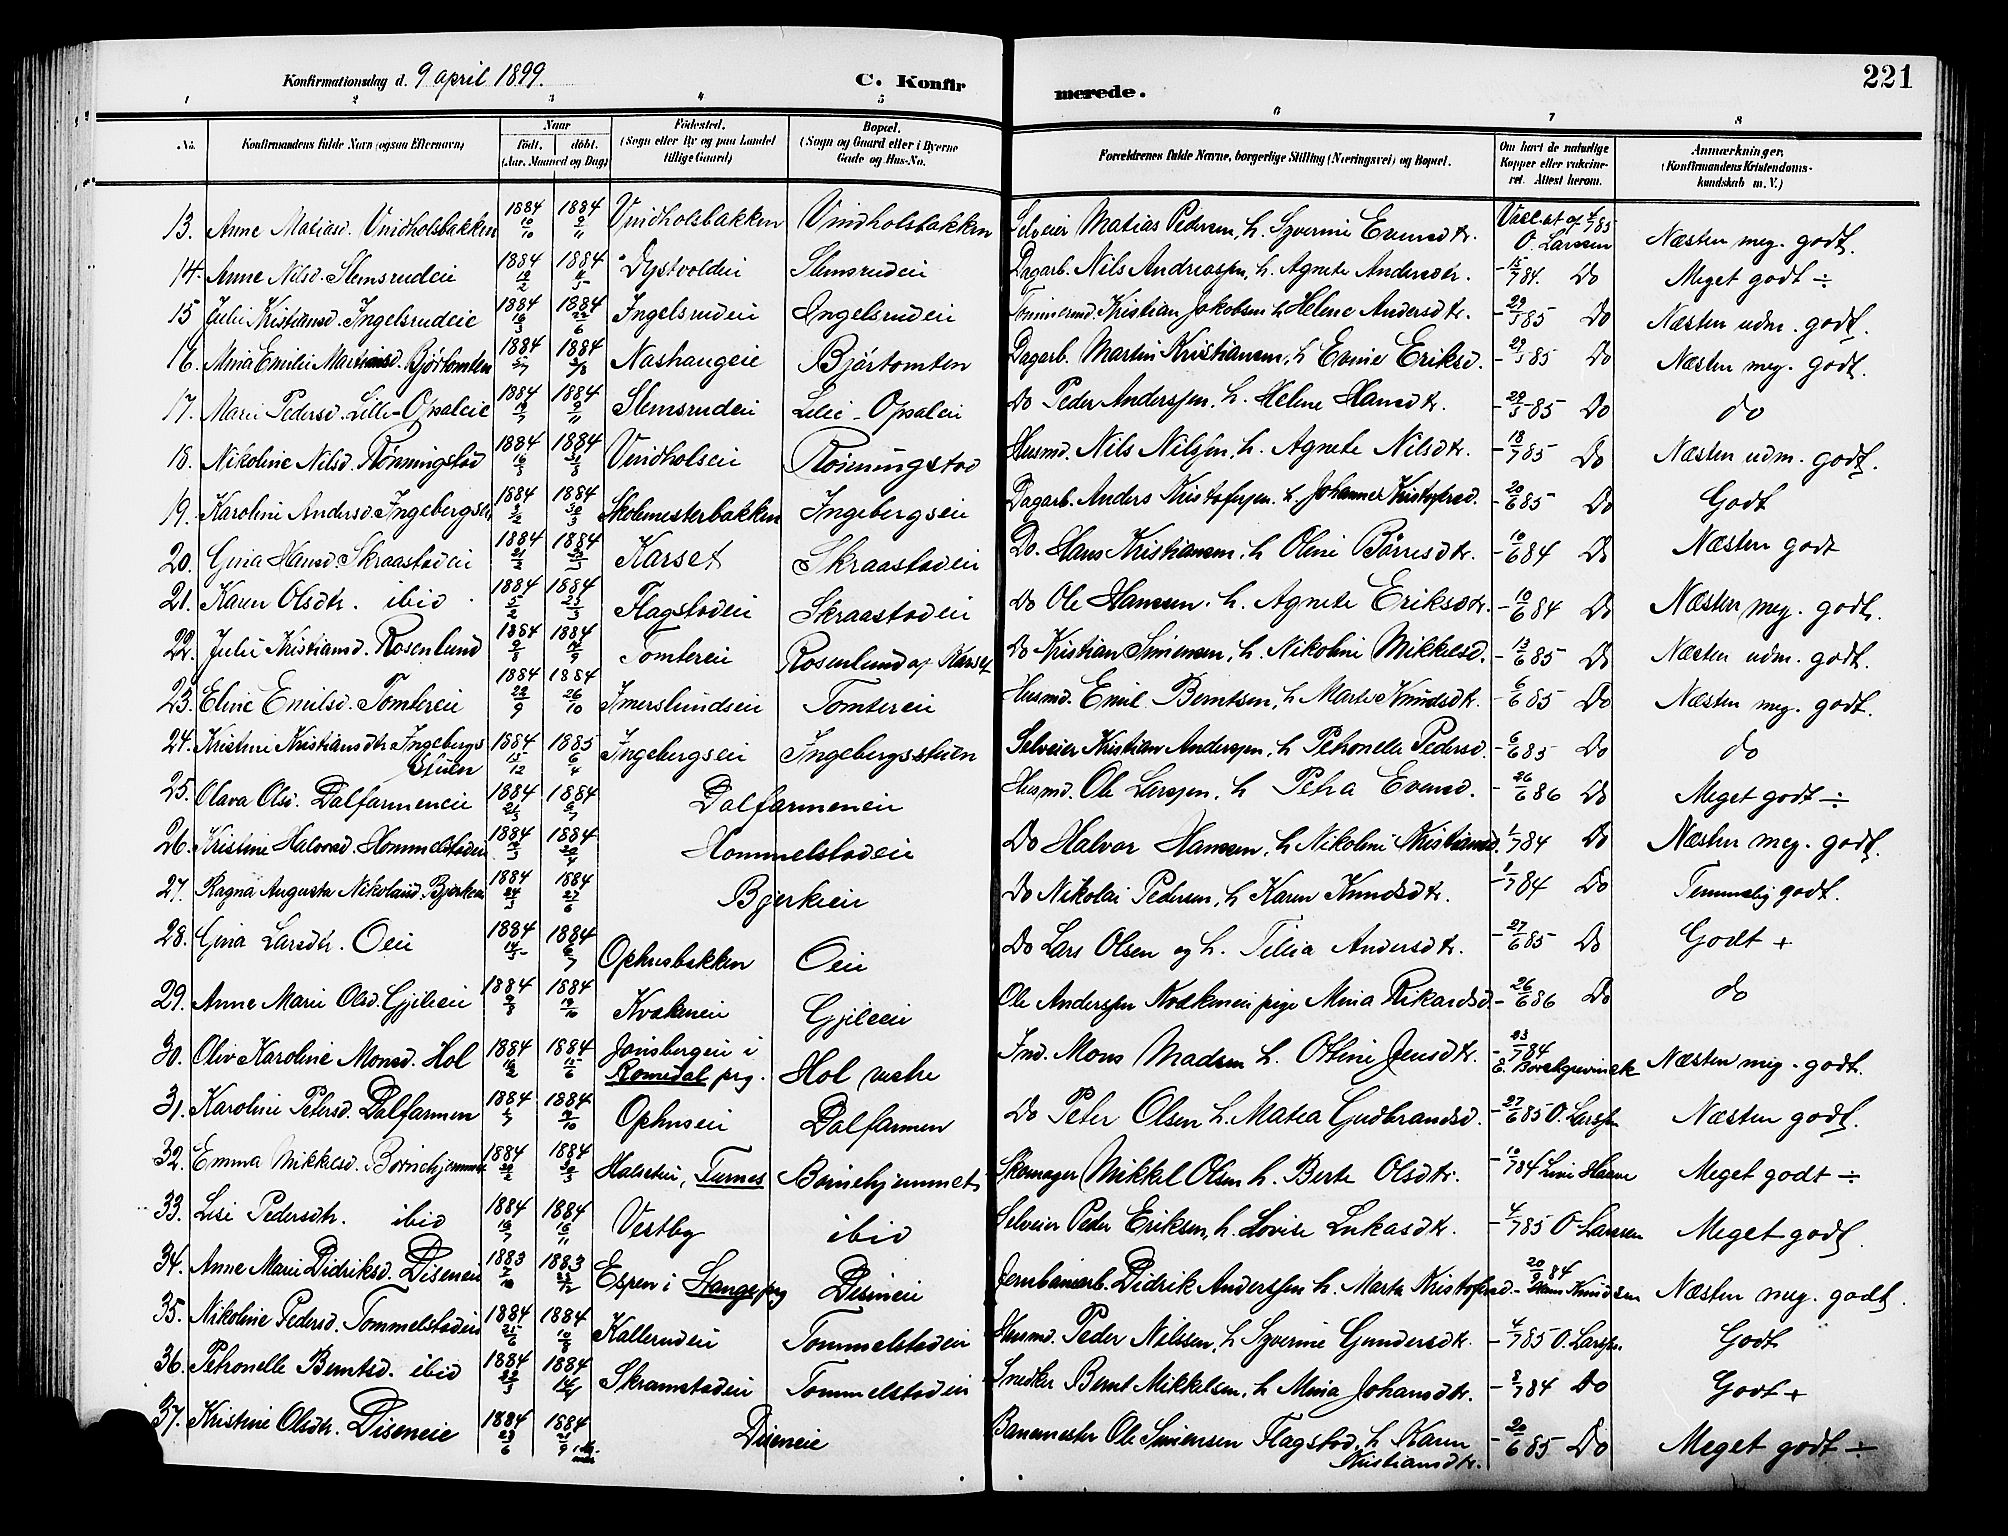 221
Konfirmationsdag d. 9 april 1899. C. Konfirmerede.
1 2 3 4 5 6 7 8
No. Konfirmandens fulde Navn (ogsaa Efternavn) Naar født. døbt. (Aar, Maaned og Dag) Fødested. (Sogn eller By og paa Landet tillige Gaard) Bopæl. (Sogn og Gaard eller i Byerne Gade og Hus-No. Forældrenes fulde Navne, borgerlige Stilling (Næringsvei) og Bopæl. Om havt de naturlige Kopper eller vakcineret. Attest herom. Anmærkninger. (Konfirmandens Kristendomskundskab m. V.)
13. Anne Matiasd. Vindholsbakken 1884 10/10 1884 9/11 Vindholsbakken Vindholsbakken Selveier Matias Pedersen, h. Syverine Evensdtr. O. Larsen Næsten meg. godt.
14. Anne Nilsd. Slemsrudeie 1884 1884 Dystvoldeie Slemsrudeie Dagarb. Nils Andreassen, h. Agnete Andersdtr. - 15/7 84. Do Meget godt ÷
15 Julie Kristiansd. Ingelsrudeie 1884 1884 22/6 Ingelsrudeie Ingelsrudeie Tømmermd. Kristian Jakobsen h Helene Andersdtr. - 29/5 85 Do Næsten udm. godt.
16. Mina Emilie Martinsd. Bjørtomten 1884 1884 Nashaugeie Bjørtomten Dagarb. Martin Kristiansen, h Evine Eriksd. - 29/5 85 Do Næsten meg. godt.
17. Marie Pedersd. Lille-Opsaleie 1884 1884 9/11 Slemsrudeie Lille-Opsaleie Do Peder Anderssen, h. Helene Hansdtr. - 29/5 85 Do do
18. Nikoline Nilsd. Rønningstad 1884 1884 Vindholseie Rønningstad Husmd. Nils Nilssen, h. Agnete Nilsdtr. - 18/7 85 Do Næsten udm. godt.
19. Karoline Andersd. Ingebergseie 1884 1884 30/3 Skolemesterbakken Ingebergseie Dagarb. Anders Kristofersen, h. Johanne Kristofersd. - 20/6 85 Do Godt
20. Gina Hansd. Skraastadeie 1884 21/2 1884 Karset Skraastadeie Do. Hans Kristiansen, h Oline Børresdtr. - 10/6 84 Do Næsten godt
21. Karen Olsdtr. ibid 1884 5/2 1884 23/3 Flagstadeie Skraastadeie Do Ole Hansen, h. Agnete Eriksdtr. - 10/6 84 Do Næsten meg. godt.
22. Julie Kristiansd. Rosenlund 1884 9/8 1884 14/9 Tomtereie Rosenlund af Karset Do Kristian Simensen, h. Nikoline Mikkelsd. - 13/6 85 Do Næsten udm. godt.
23. Eline Emilsd. Tomtereie 1884 22/9 1884 26/10 Imerslundseie Tomtereie Husmd. Emil Berntsen, h Marte Knudsdtr. - 6/6 85 Do Næsten meg. godt.
24. Kristine Kristiansdtr Ingebergsstuen 1884 15/12 1885 6/4 Ingebergseie Ingebergsstuen Selveier Kristian Anderssen, h Petronelle Pedersd. - 6/6 85 Do do
25. Olava Olsd. Dalfarmeneie 1884 1884 6/7 Dalfarmeneie Husmd. Ole Larssen, h Petra Evensd. - 26/6 86 Do Meget godt ÷
26. Kristine Halvorsd. Hommelstadeie 1884 1884 Hommelstadeie Do Halvor Hansen, h Nikoline Kristiansd. 1/7 84 Do Næsten meg. godt.
27. Ragna Augusta Nikolaisd. Bjerkeie 1884 24/3 1884 27/6 Bjerkeie Do Nikolai Pedersen, h Karen Knudsdtr. - 1/7 84 Do Temmelig godt.
28. Gina Larsdtr. Oeie 1884 14/5 1884 6/7 Ophusbakken Oeie Do Lars Olsen og h. Tilia Andersdtr. - 27/6 85 Do Godt +
29. Anne Marie Olsd. Gjileeie 1884 9/8 1884 19/10 Kvækneeie Gjileeie Ole Anderssen Kvækneeie pige Mina Rikardsd. - 26/6 86 Do do
30. Oliv Karoline Monsd. Hol 1884 1884 15/6 Jønsbergeie i Romedal prg. Hol vestre Ind. Mons Madsen h. Otline Jensdtr. - 23/7 84 E. Borchgrevinck Næsten meg. godt.
31. Karoline Petersd. Dalfarmen 1884 1884 Ophuseie Dalfarmen Do Peter Olsen h. Matea Gudbrandsd. - 27/6 85 O. Larssen Næsten godt.
32. Emma Mikkelsd. Børnehjemmet 1884 1884 30/3 Halseteie, Furnes Børnehjemmet Skomager Mikkel Olsen h. Berte Olsdtr. - 10/7 84 Meget godt ÷
33. Lise Pedersdtr. ibid 1884 19/7 1884 16/11 Vestby ibid Selveier Peder Eriksen, h. Lovise Lukasdtr. - 4/7 85 O. Larssen Meget godt.
34. Anne Marie Didriksd. Diseneie 1883 7/10 1883 Espen i Stange prg Diseneie Jernbanearb. Didrik Anderssen h. Marta Kristofersd. - 20/9 84 Knudsen Næsten meg. godt.
35. Nikoline Pedersd. Tommelstadeie 1884 25/6 1884 10/8 Kallerudeie Tommelstadeie Husmd. Peder Nilssen, h Syverine Gundersdtr. - 4/7 85 O. Larssen. Godt
36. Petronelle Berntsd. ibid 1884 22/3 1884 Skramstadeie Tommelstadeie Snedker Bernt Mikkelsen, h Mina Johansdtr. - 8/7 84 Do Godt +
37. Kristine Olsdtr. Diseneie 1884 23/6 1884 21/9 Diseneie Banemester Ole Simensen Flagstad, h Karen Kristiansdtr. - 20/6 85 Do Meget godt ÷